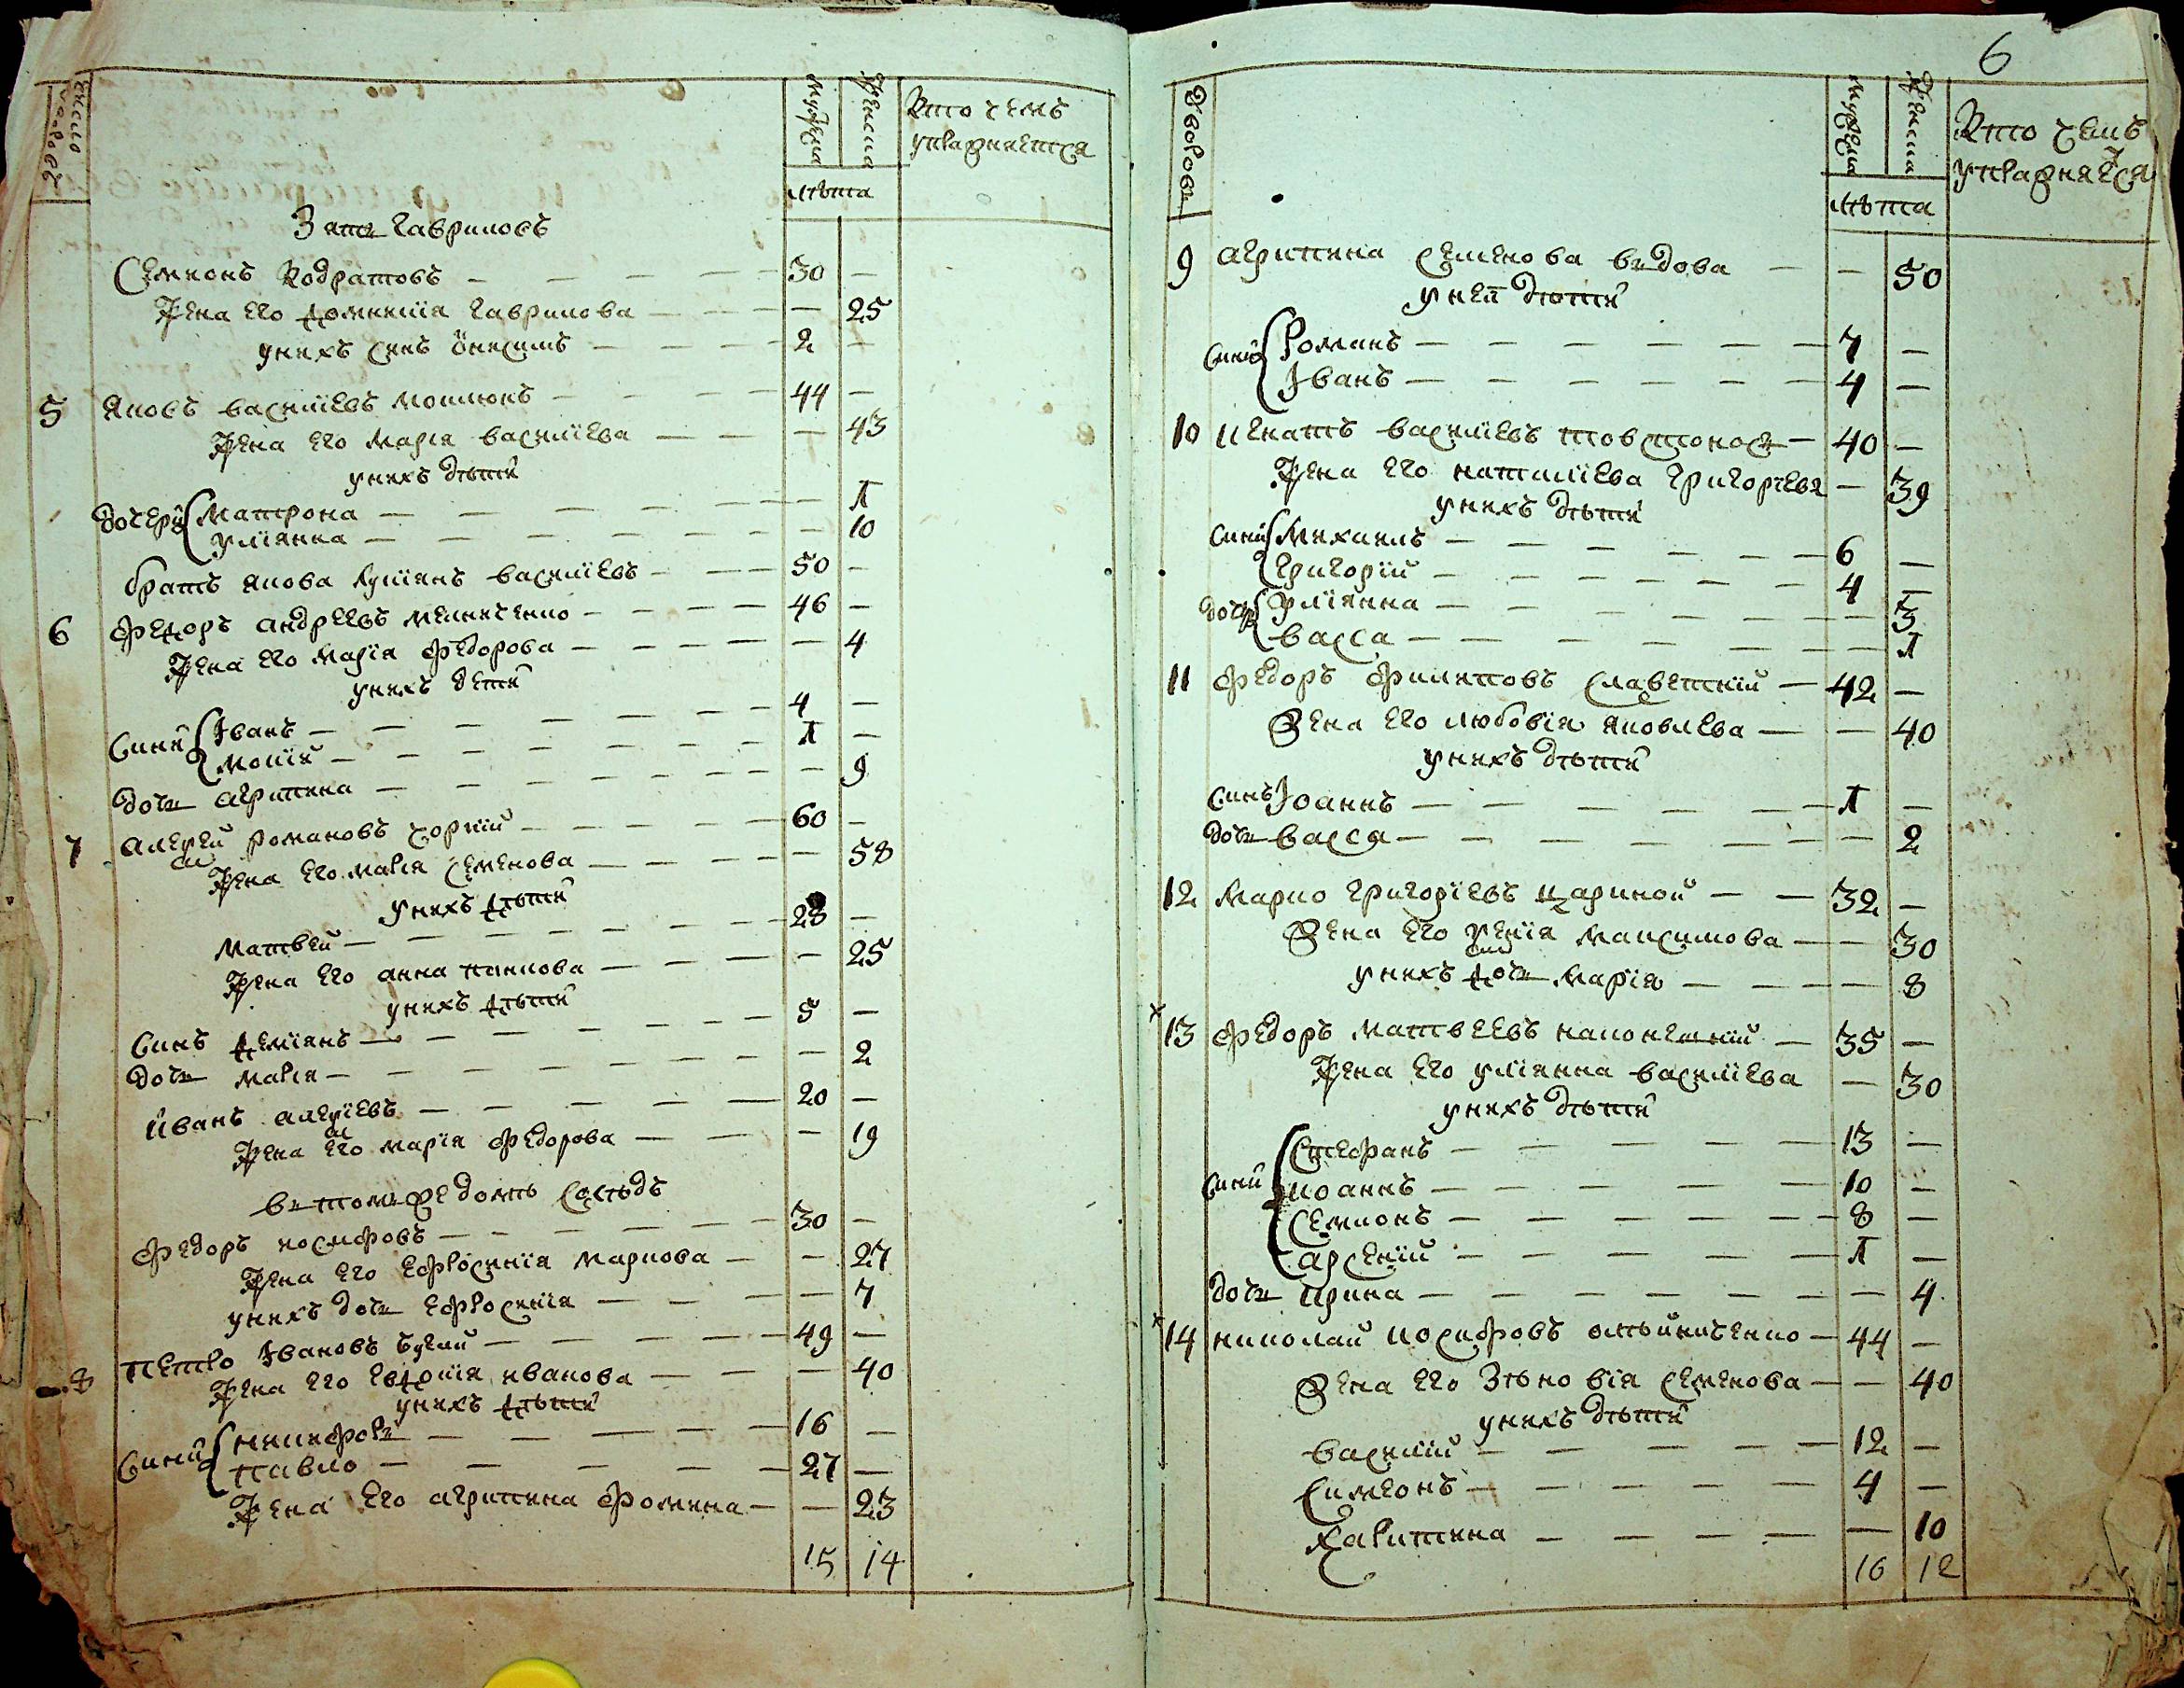 Число дворовъ
мужеска
женска
Кто чемъ
упражняется
лѣта
Зять Гавриловъ
Семионъ Кодратовъ — 30 —
Жена его Домникія Гаврилова — — 25
у нихъ синъ Онисимъ — 2 —
5 Яковъ Василіевъ — 44 —
Жена его Марія Василіева — — 43
у нихъ дѣти
дочери Матрона — — 1
Улianна — — 10
братъ Якова Лукіянъ Василіевъ — 50 —
6 Федоръ Андреевъ — 46 —
Жена его Марія Федорова — — 4
у нихъ дети
Сини Іванъ — 4 —
— 1 —
дочь Агрипина — — 9
7 Алексей Романовъ Чорній — 60 —
Жена его Марія Семенова — — 58
у нихъ дѣти
Матвей — 28 —
Жена его Анна — — 25
у нихъ дѣти
Синъ Деміянъ — 5 —
дочь Марія — — 2
Иванъ Алексіевъ — 20 —
Жена его Марія Федорова — — 19
въ томъ же домѣ сосѣдъ
Федоръ Иосифовъ — 30 —
Жена его Ефросинія Маркова — — 27
у нихъ дочь Ефросинія — — 7
8 Петро Івановъ — 49 —
Жена его Евдокія Иванова — — 40
у нихъ дѣти
Сини Никифоръ — 16 —
Павло — 27 —
Жена его Агрипина Фомина — — 23
15 14
6
Дворовъ
мужеска
женска
Кто чемъ
упражняется
лѣта
9 Агрипина Семенова вьдова — — 50
у ней дѣти
Сини Романъ — 7 —
Іванъ — 4 —
10 Игнатъ Василіевъ Товстоносъ — 40 —
Жена его Наталіева Григоріева — 39
у нихъ дѣти
Сини Михаилъ — 6 —
Григорій — 4 —
дочери Уліянна — — 3
Васса — — 1
11 Федоръ Филиповъ — 42 —
Жена его Любовія Яковлева — — 40
у нихъ дѣти
Синъ Іоаннъ — 1 —
дочь Васса — — 2
12 Марко Григоріевъ — 32 —
Жена его Ксенія Максимова — — 30
у нихъ дочь Марія — — 8
13 Федоръ Матвеевъ — 35 —
Жена его Уліянна Василіева — 30
у нихъ дѣти
Сини Стефанъ — 13 —
Иоаннъ — 10 —
Семионъ — 8 —
Арсеній — 1 —
дочь Ирина — — 4
14 Николай Иосифовъ Олѣйниченко — 44 —
Жена его Зѣновія Семенова — — 40
у нихъ дѣти
Василій — 12 —
Симеонъ — 4 —
Харитина — — 10
16 12